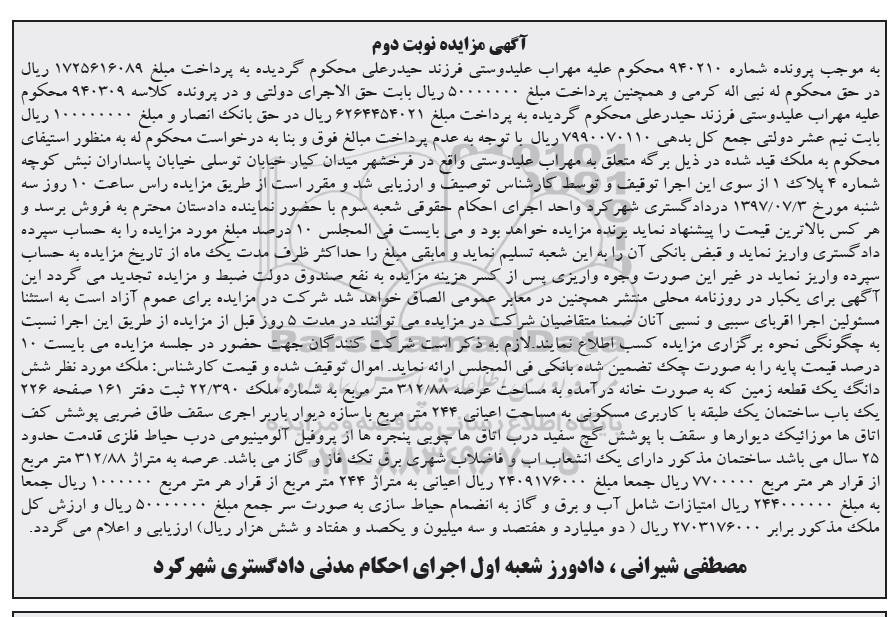 آگهی مزایده نوبت دوم
به موجب پرونده شماره ۹۴۰۲۱۰ محکوم علیه مهراب علیدوستی فرزند حیدرعلی محکوم گردیده به پرداخت مبلغ ۱۷۲۵۶۱۶۰۸۹ ریال
در حق محکوم له نبی اله کرمی و همچنین پرداخت مبلغ ۵۰۰۰۰۰۰۰ ریال بابت حق الاجرای دولتی و در پرونده کلاسه ۹۴۰۳۰۹ محکوم
علیه مهراب علیدوستی فرزند حیدرعلی محکوم گردیده به پرداخت مبلغ ۶۲۶۴۴۵۴۰۲۱ ریال در حق بانک انصار و مبلغ ۱۰۰۰۰۰۰۰۰ ریال
بابت نیم عشر دولتی جمع کل بدهی ۷۹۹۰۰۷۰۱۱۰ ریال با توجه به عدم پرداخت مبالغ فوق و بنا به درخواست محکوم له به منظور استیفای
محکوم به ملک قید شده در ذیل برگه متعلق به مهراب علیدوستی واقع در فرخشهر میدان کیار خیابان توسلی خیابان پاسداران نبش کوچه
شماره ۴ پلاک ۱ از سوی این اجرا توقیف و توسط کارشناس توصیف و ارزیابی شد و مقرر است از طریق مزایده راس ساعت ۱۰ روز سه
شنبه مورخ ۱۳۹۷/۰۷/۳ دردادگستری شهرکرد واحد اجرای احکام حقوقی شعبه سوم با حضور نماینده دادستان محترم به فروش برسد و
هر کس بالاترین قیمت را پیشنهاد نماید برنده مزایده خواهد بود و می بایست فی المجلس ۱۰ درصد مبلغ مورد مزایده را به حساب سپرده
دادگستری واریز نماید و قبض بانکی آن را به این شعبه تسلیم نماید و مابقی مبلغ را حداکثر ظرف مدت یک ماه از تاریخ مزایده به حساب
سپرده واریز نماید در غیر این صورت وجوه واریزی پس از کسر هزینه مزایده به نفع صندوق دولت ضبط و مزایده تجدید می گردد این
آگهی برای یکبار در روزنامه محلی منتشر همچنین در معابر عمومی الصاق خواهد شد شرکت در مزایده برای عموم آزاد است به استثنا
مسئولین اجرا اقربای سببی و نسبی آنان ضمنا متقاضیان شرکت در مزایده می توانند در مدت ۵ روز قبل از مزایده از طریق این اجرا نسبت
به چگونگی نحوه برگزاری مزایده کسب اطلاع نمایند.لازم به ذکر است شرکت کنندگان جهت حضور در جلسه مزایده می بایست ۱۰
درصد قیمت پایه را به صورت چک تضمین شده بانکی فی المجلس ارائه نماید. اموال توقیف شده و قیمت کارشناس: ملک مورد نظر شش
دانگ یک قطعه زمین که به صورت خانه در آمده به مساحت عرصه ۳۱۲/۸۸ متر مربع به شماره ملک ۲۲/۳۹۰ ثبت دفتر ۱۶۱ صفحه ۲۲۶
یک باب ساختمان یک طبقه با کاربری مسکونی به مساحت اعیانی ۲۴۴ متر مربع با سازه دیوار باربر اجری سقف طاق ضربی پوشش کف
اتاق ها موزائیک دیوارها و سقف با پوشش گچ سفید درب اتاق ها چوبی پنجره ها از پروفیل آلومینیومی درب حیاط فلزی قدمت حدود
۲۵ سال می باشد ساختمان مذکور دارای یک انشعاب اب و فاضلاب شهری برق تک فاز و گاز می باشد. عرصه به متراژ ۳۱۲/۸۸ متر مربع
از قرار هر متر مربع ۷۷۰۰۰۰۰ ریال جمعا مبلغ ۲۴۰۹۱۷۶۰۰۰ ریال اعیانی به متراژ ۲۴۴ متر مربع از قرار هر متر مربع ۱۰۰۰۰۰۰ ریال جمعا
به مبلغ ۲۴۴۰۰۰۰۰۰ ریال امتیازات شامل آب و برق و گاز به انضمام حیاط سازی به صورت سر جمع مبلغ ۵۰۰۰۰۰۰۰ ریال و ارزش کل
ملک مذکور برابر ۲۷۰۳۱۷۶۰۰۰ ریال ( دو میلیارد و هفتصد و سه میلیون و یکصد و هفتاد و شش هزار ریال) ارزیابی و اعلام می گردد.
مصطفی شیرانی ، دادورز شعبه اول اجرای احکام مدنی دادگستری شهرکرد